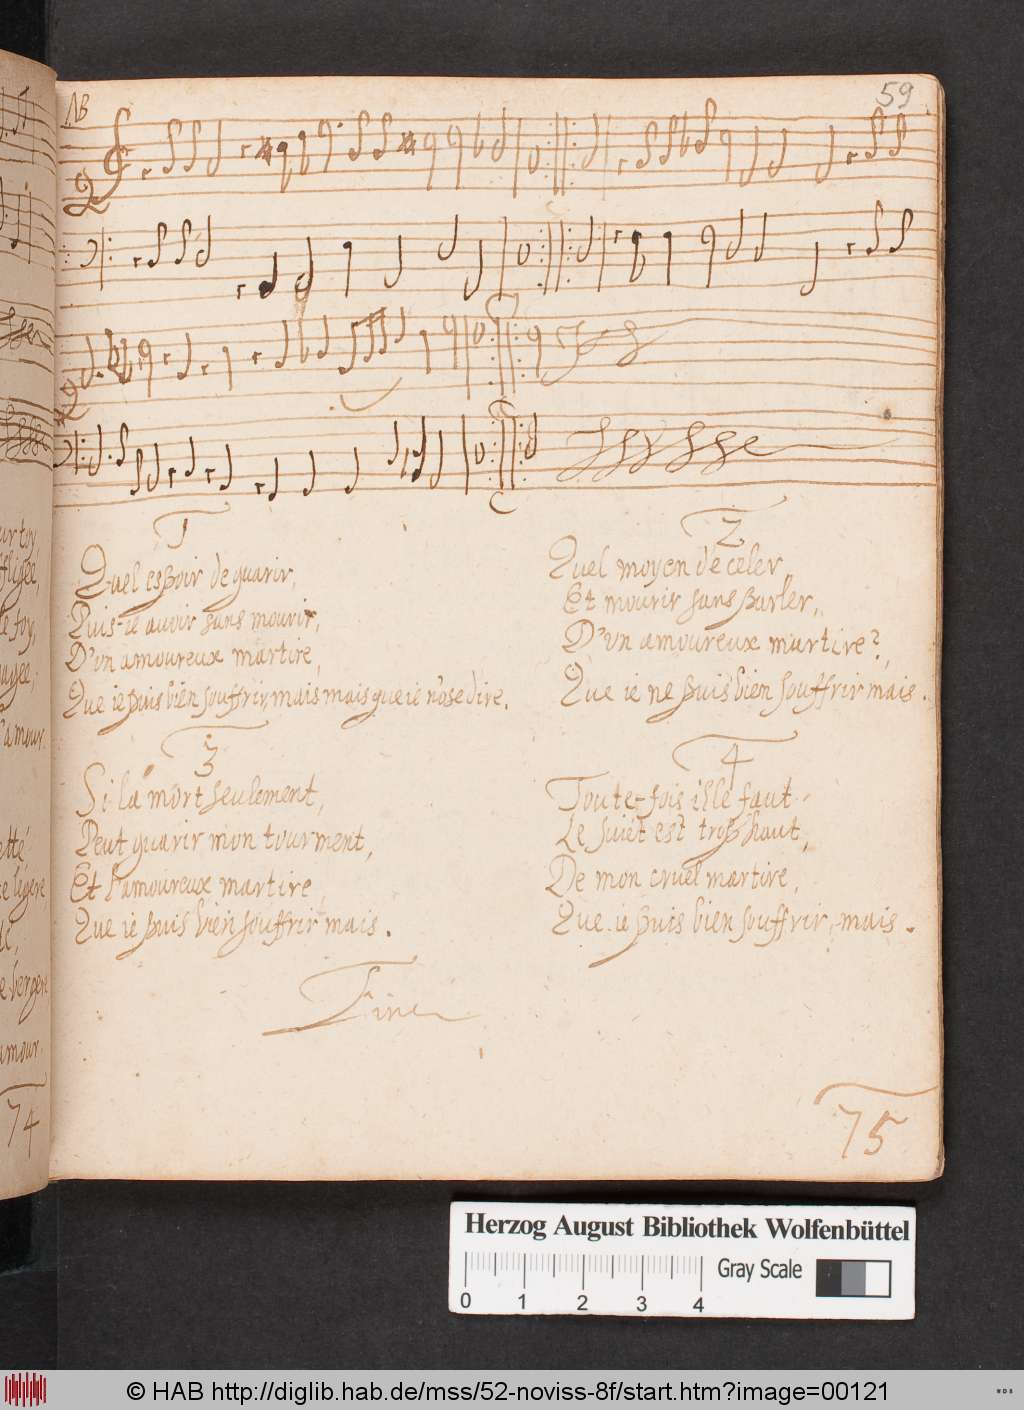 NB
59
1
Quel espoir de guarir,
Puis-ie auoir sans mourir,
D'vn amoureux martire,
Que ie puis bien souffrir, mais mais que ie n'ose dire.
2
Quel moyen de celer,
Et mourir sans parler,
D'vn amoureux martire?,
Que ie ne puis bien souffrir mais.
3
Si la mort seulement,
Peut guarir mon tourment,
Et l'amoureux martire
Que ie puis bien souffrir mais.
4
Toute-fois il le faut
Le suiet est trop haut,
De mon cruel martire,
Que ie puis bien souffrir, mais.
Fine
75
ur toy,
ffligée,
le foy,
l'amour.
ligere
e bergere
amour.
74
Herzog August Bibliothek Wolfenbüttel
Gray Scale
0 1 2 3 4
© HAB http://diglib.hab.de/mss/52-noviss-8f/start.htm?image=00121